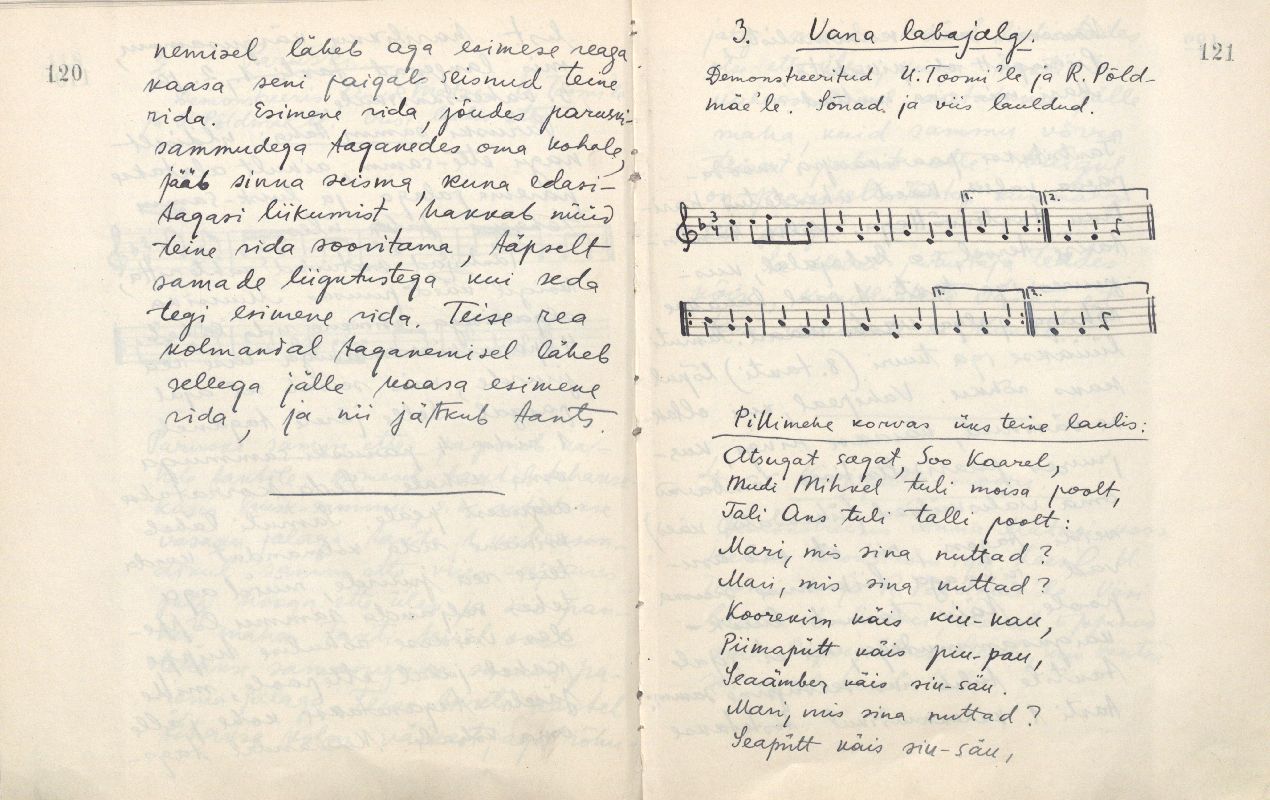 120
nemisel läheb aga esimese reaga
kaasa seni paigal seisnud teine
rida. Esimene rida, jõudes paruski-
sammudega taganedes oma kohale,
jääb sinna seisma, kuna edasi-
tagasi liikumist hakkab nüüd
teine rida sooritama, täpselt
samade liigutustega kui seda
tegi esimene rida. Teise rea
kolmandal taganemisel läheb
sellega jälle kaasa esimene
rida, ja nii jätkub tants.
121
3. Vana labajalg.
Demonstreeritud U. Toomi'le ja R. Põld-
mäe'le. Sõnad ja viis lauldud.
3
4
1. 2.
1. 2.
Pillimehe korvas üks teine laulis:
Atsugat sægat, Soo Kaarel,
Mudi Mihkel tuli moisa poolt,
Tali Ans tuli talli poolt:
Mari, mis sina nuttad?
Mari, mis sina nuttad?
Koorekirn käis kiu-kau,
Piimapütt käis piu-pau,
Seaämber käis siu-säu.
Mari, mis sina nuttad?
Seapütt käis siu-säu,